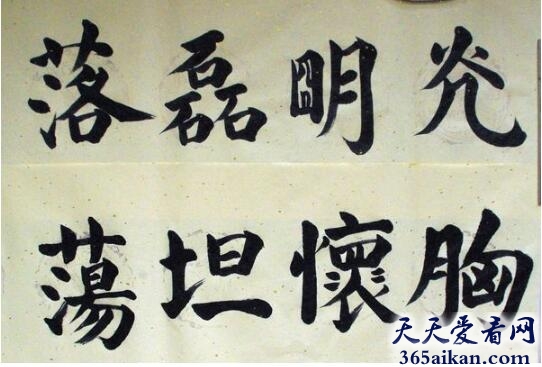 光明磊落
胸懷坦蕩
天天爱看网
365aikan.com